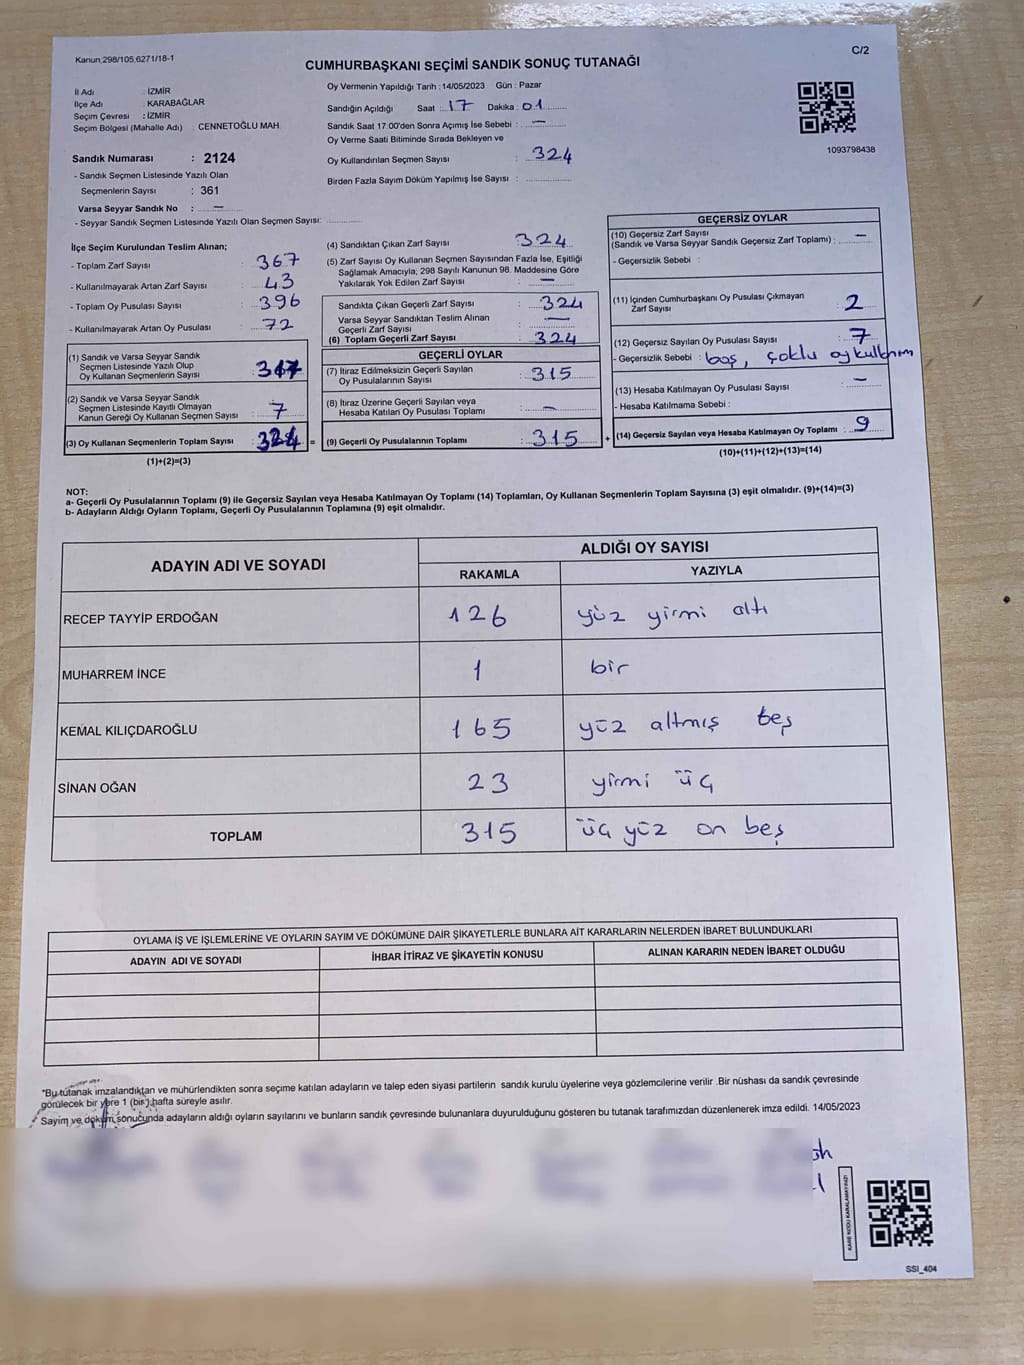 Kanun;298/105,6271/18-1
C/2
CUMHURBAŞKANI SEÇİMİ SANDIK SONUÇ TUTANAĞI
İl Adı : İZMİR
İlçe Adı : KARABAĞLAR
Seçim Çevresi : İZMİR
Seçim Bölgesi (Mahalle Adı) : CENNETOĞLU MAH.
Oy Vermenin Yapıldığı Tarih : 14/05/2023 Gün : Pazar
Sandığın Açıldığı Saat : 17 Dakika : 01
Sandık Saat 17:00'den Sonra Açımış İse Sebebi : —
Oy Verme Saati Bitiminde Sırada Bekleyen ve
Oy Kullandırılan Seçmen Sayısı : 324
Birden Fazla Sayım Döküm Yapılmış İse Sayısı :
1093798438
Sandık Numarası : 2124
- Sandık Seçmen Listesinde Yazılı Olan
Seçmenlerin Sayısı : 361
Varsa Seyyar Sandık No : —
- Seyyar Sandık Seçmen Listesinde Yazılı Olan Seçmen Sayısı:
İlçe Seçim Kurulundan Teslim Alınan;
- Toplam Zarf Sayısı : 367
- Kullanılmayarak Artan Zarf Sayısı : 43
- Toplam Oy Pusulası Sayısı : 396
- Kullanılmayarak Artan Oy Pusulası : 72
(1) Sandık ve Varsa Seyyar Sandık
Seçmen Listesinde Yazılı Olup
Oy Kullanan Seçmenlerin Sayısı :
(2) Sandık ve Varsa Seyyar Sandık
Seçmen Listesinde Kayıtlı Olmayan
Kanun Gereği Oy Kullanan Seçmen Sayısı : 7
(3) Oy Kullanan Seçmenlerin Toplam Sayısı : 324 =
(1)+(2)=(3)
(4) Sandıktan Çıkan Zarf Sayısı : 324
(5) Zarf Sayısı Oy Kullanan Seçmen Sayısından Fazla İse, Eşitliği
Sağlamak Amacıyla; 298 Sayılı Kanunun 98. Maddesine Göre
Yakılarak Yok Edilen Zarf Sayısı : —
Sandıkta Çıkan Geçerli Zarf Sayısı : 324
Varsa Seyyar Sandıktan Teslim Alınan
Geçerli Zarf Sayısı : —
(6) Toplam Geçerli Zarf Sayısı : 324
GEÇERLİ OYLAR
(7) İtiraz Edilmeksizin Geçerli Sayılan
Oy Pusulalarının Sayısı : 315
(8) İtiraz Üzerine Geçerli Sayılan veya
Hesaba Katılan Oy Pusulası Toplamı : —
(9) Geçerli Oy Pusulalarının Toplamı : 315 +
GEÇERSİZ OYLAR
(10) Geçersiz Zarf Sayısı
(Sandık ve Varsa Seyyar Sandık Geçersiz Zarf Toplamı) : —
- Geçersizlik Sebebi :
(11) İçinden Cumhurbaşkanı Oy Pusulası Çıkmayan
Zarf Sayısı : 2
(12) Geçersiz Sayılan Oy Pusulası Sayısı : 7
- Geçersizlik Sebebi : boş, çoklu oy kullanım
(13) Hesaba Katılmayan Oy Pusulası Sayısı : —
- Hesaba Katılmama Sebebi :
(14) Geçersiz Sayılan veya Hesaba Katılmayan Oy Toplamı : 9
(10)+(11)+(12)+(13)=(14)
NOT:
a- Geçerli Oy Pusulalarının Toplamı (9) ile Geçersiz Sayılan veya Hesaba Katılmayan Oy Toplamı (14) Toplamları, Oy Kullanan Seçmenlerin Toplam Sayısına (3) eşit olmalıdır. (9)+(14)=(3)
b- Adayların Aldığı Oyların Toplamı, Geçerli Oy Pusulalarının Toplamına (9) eşit olmalıdır.
ADAYIN ADI VE SOYADI
ALDIĞI OY SAYISI
RAKAMLA YAZIYLA
RECEP TAYYİP ERDOĞAN 126 yüz yirmi altı
MUHARREM İNCE 1 bir
KEMAL KILIÇDAROĞLU 165 yüz altmış beş
SİNAN OĞAN 23 yirmi üç
TOPLAM 315 üç yüz on beş
OYLAMA İŞ VE İŞLEMLERİNE VE OYLARIN SAYIM VE DÖKÜMÜNE DAİR ŞİKAYETLERLE BUNLARA AİT KARARLARIN NELERDEN İBARET BULUNDUKLARI
ADAYIN ADI VE SOYADI İHBAR İTİRAZ VE ŞİKAYETİN KONUSU ALINAN KARARIN NEDEN İBARET OLDUĞU
*Bu tutanak imzalandıktan ve mühürlendikten sonra seçime katılan adayların ve talep eden siyasi partilerin sandık kurulu üyelerine veya gözlemcilerine verilir .Bir nüshası da sandık çevresinde
görülecek bir yere 1 (bir) hafta süreyle asılır.
Sayım ve döküm sonucunda adayların aldığı oyların sayılarını ve bunların sandık çevresinde bulunanlara duyurulduğunu gösteren bu tutanak tarafımızdan düzenlenerek imza edildi. 14/05/2023
KARE KODU KARALAMAYINIZ!
SSI_404